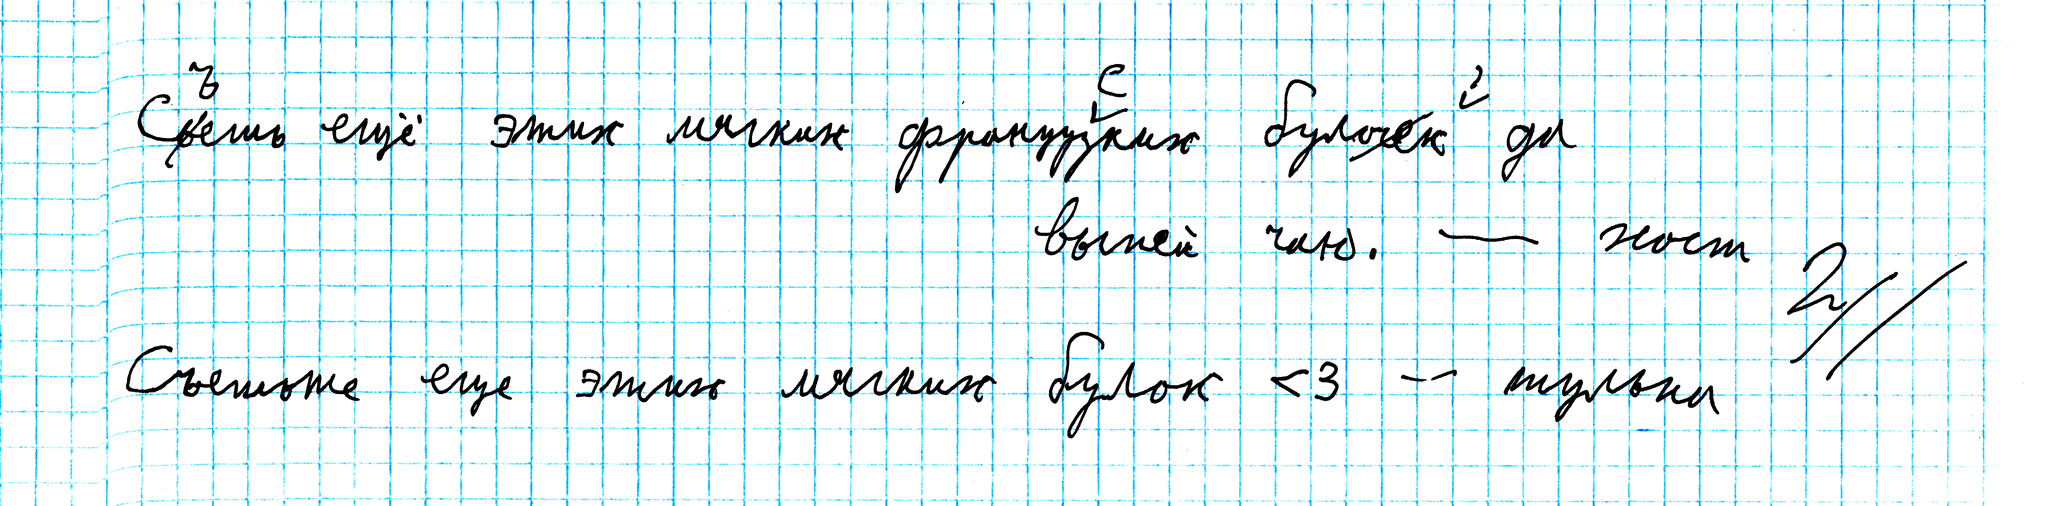 Съешь ещё этих мягких французских булочек, да
выпей чаю. — хост
2//
Съешьте еще этих мягких булок <3 -- тулька